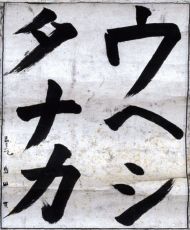 ウヘシ
タナカ